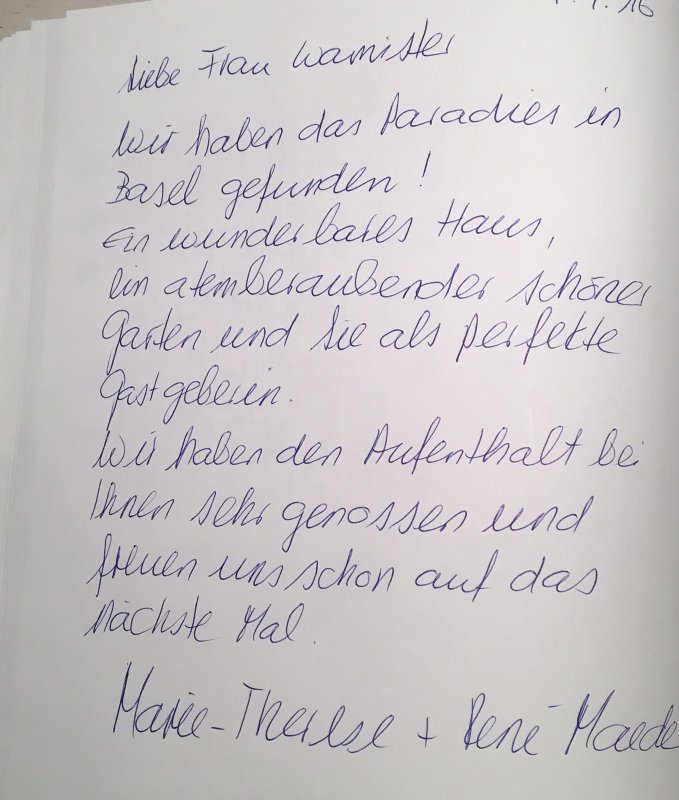 Liebe Frau Wamister
Wir haben das Paradies in
Basel gefunden!
Ein wunderbares Haus,
ein atemberaubender schöner
Garten und Sie als perfekte
Gastgeberin.
Wir haben den Aufenthalt bei
Ihnen sehr genossen und
freuen uns schon auf das
nächste Mal.
Marie-Therese + René